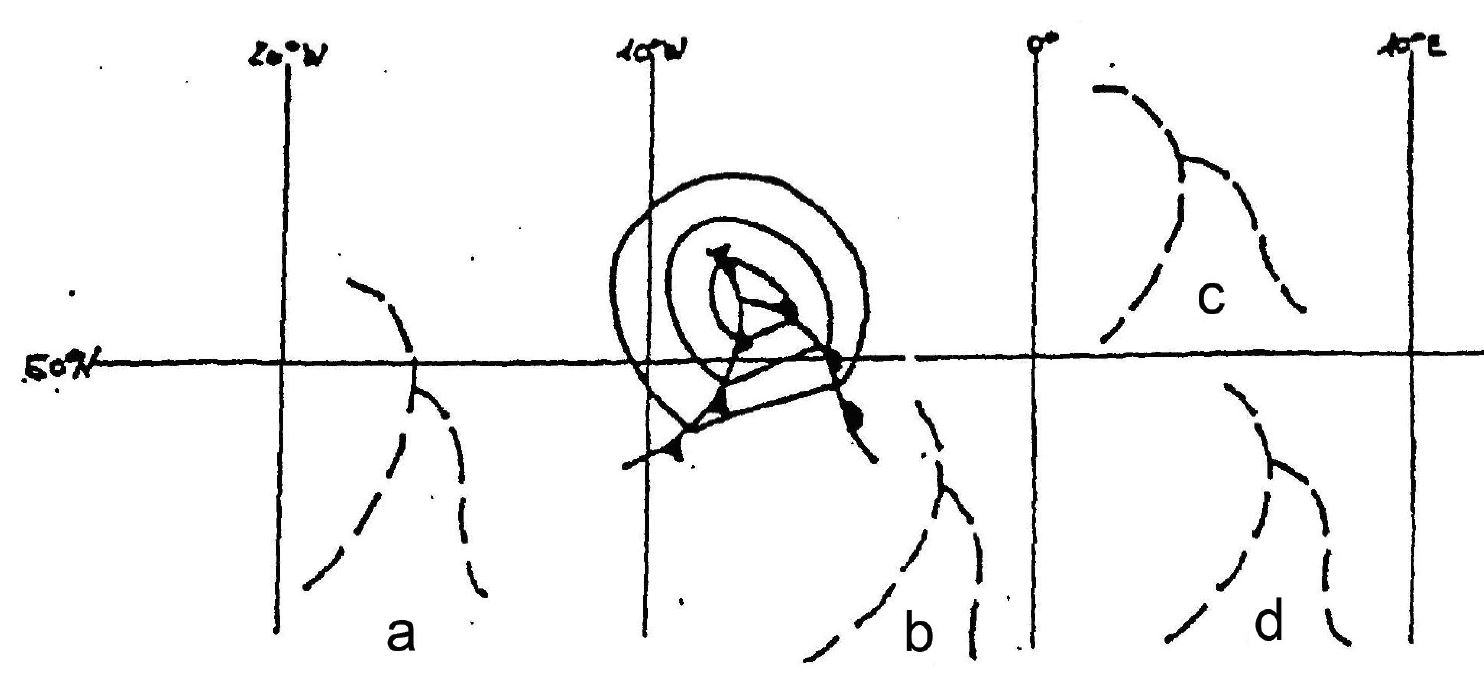 20°W 10°W 0° 10°E
50°N
c
a b d